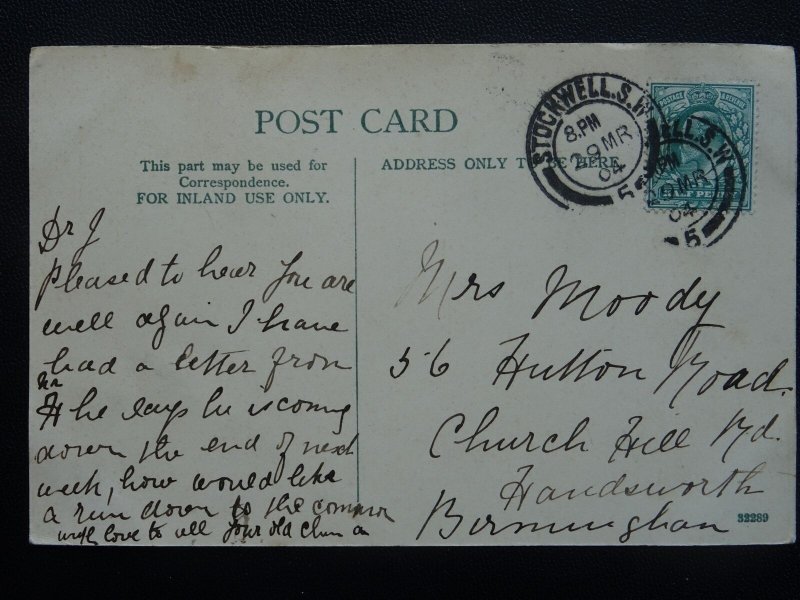 POST CARD
This part may be used for
Correspondence.
FOR INLAND USE ONLY.
ADDRESS ONLY TO BE HERE.
STOCKWELL.S.W.
8.PM
29 MR
04
5
POSTAGE
HALF PENNY
WELL.S.W.
PM
29 MR
04
5
Dr J
Pleased to hear you are
well again I have
had a letter from
H he says he is coming
down the end of next
week, how would like
a run down to the common
with love to all your old chum
Mrs Moody
56 Hutton Road.
Church Hill Rd.
Handsworth
Birmingham
32289